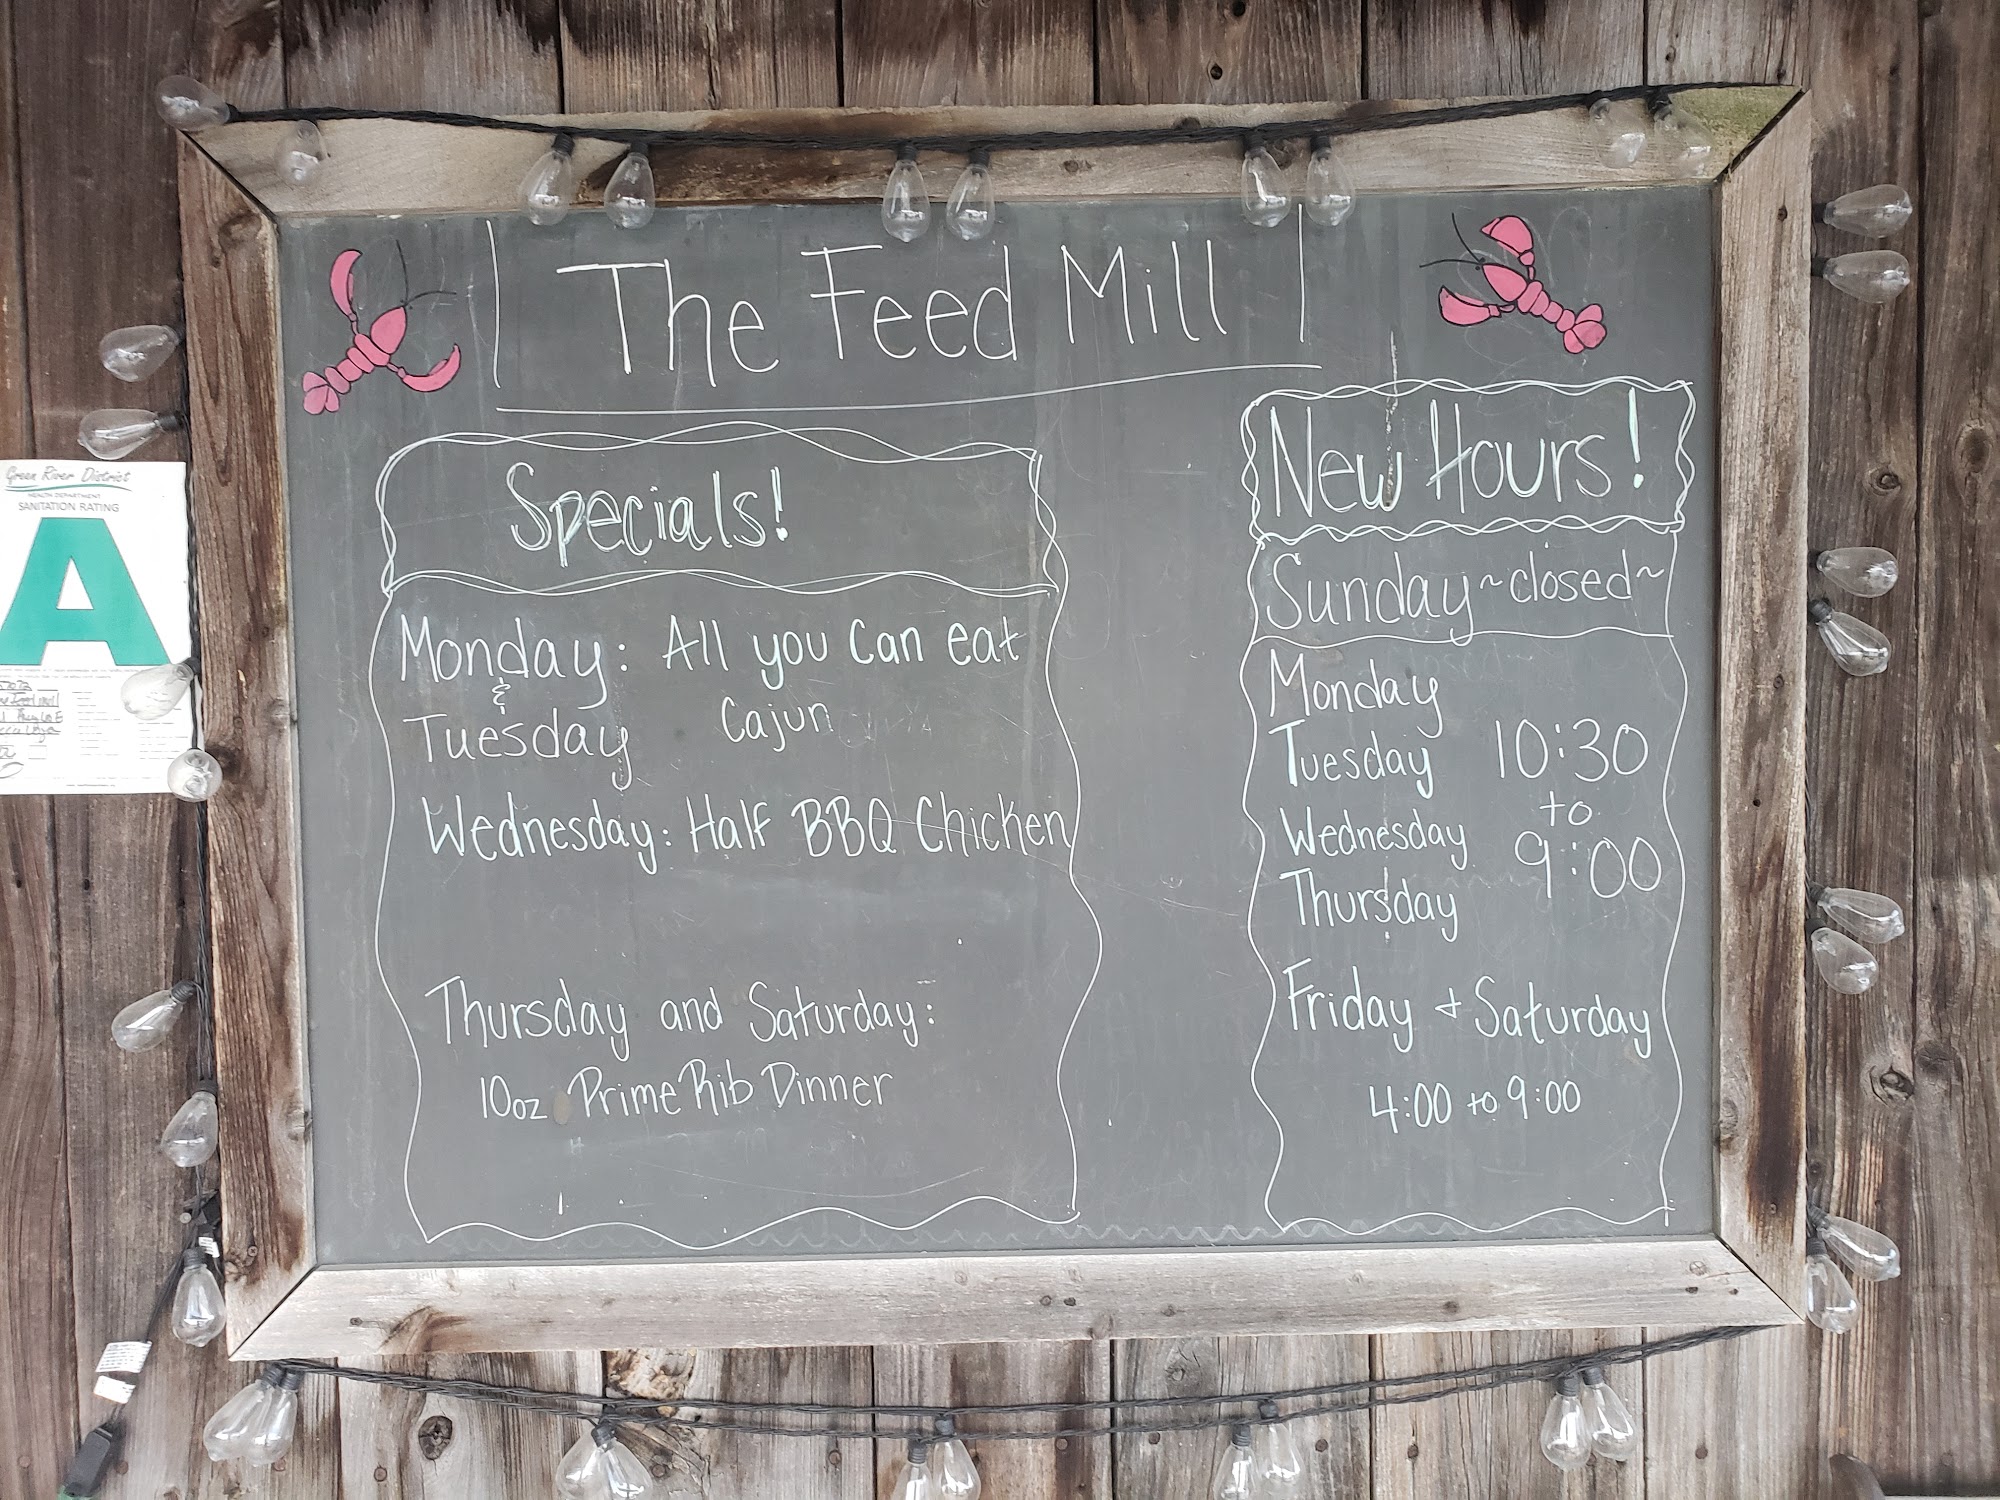 The Feed Mill
Specials!
Monday: All you can eat
&
Tuesday Cajun
Wednesday: Half BBQ Chicken
Thursday and Saturday:
10oz Prime Rib Dinner
New Hours!
Sunday ~closed~
Monday
Tuesday 10:30
to
Wednesday 9:00
Thursday
Friday + Saturday
4:00 to 9:00
Green River District
HEALTH DEPARTMENT
SANITATION RATING
A